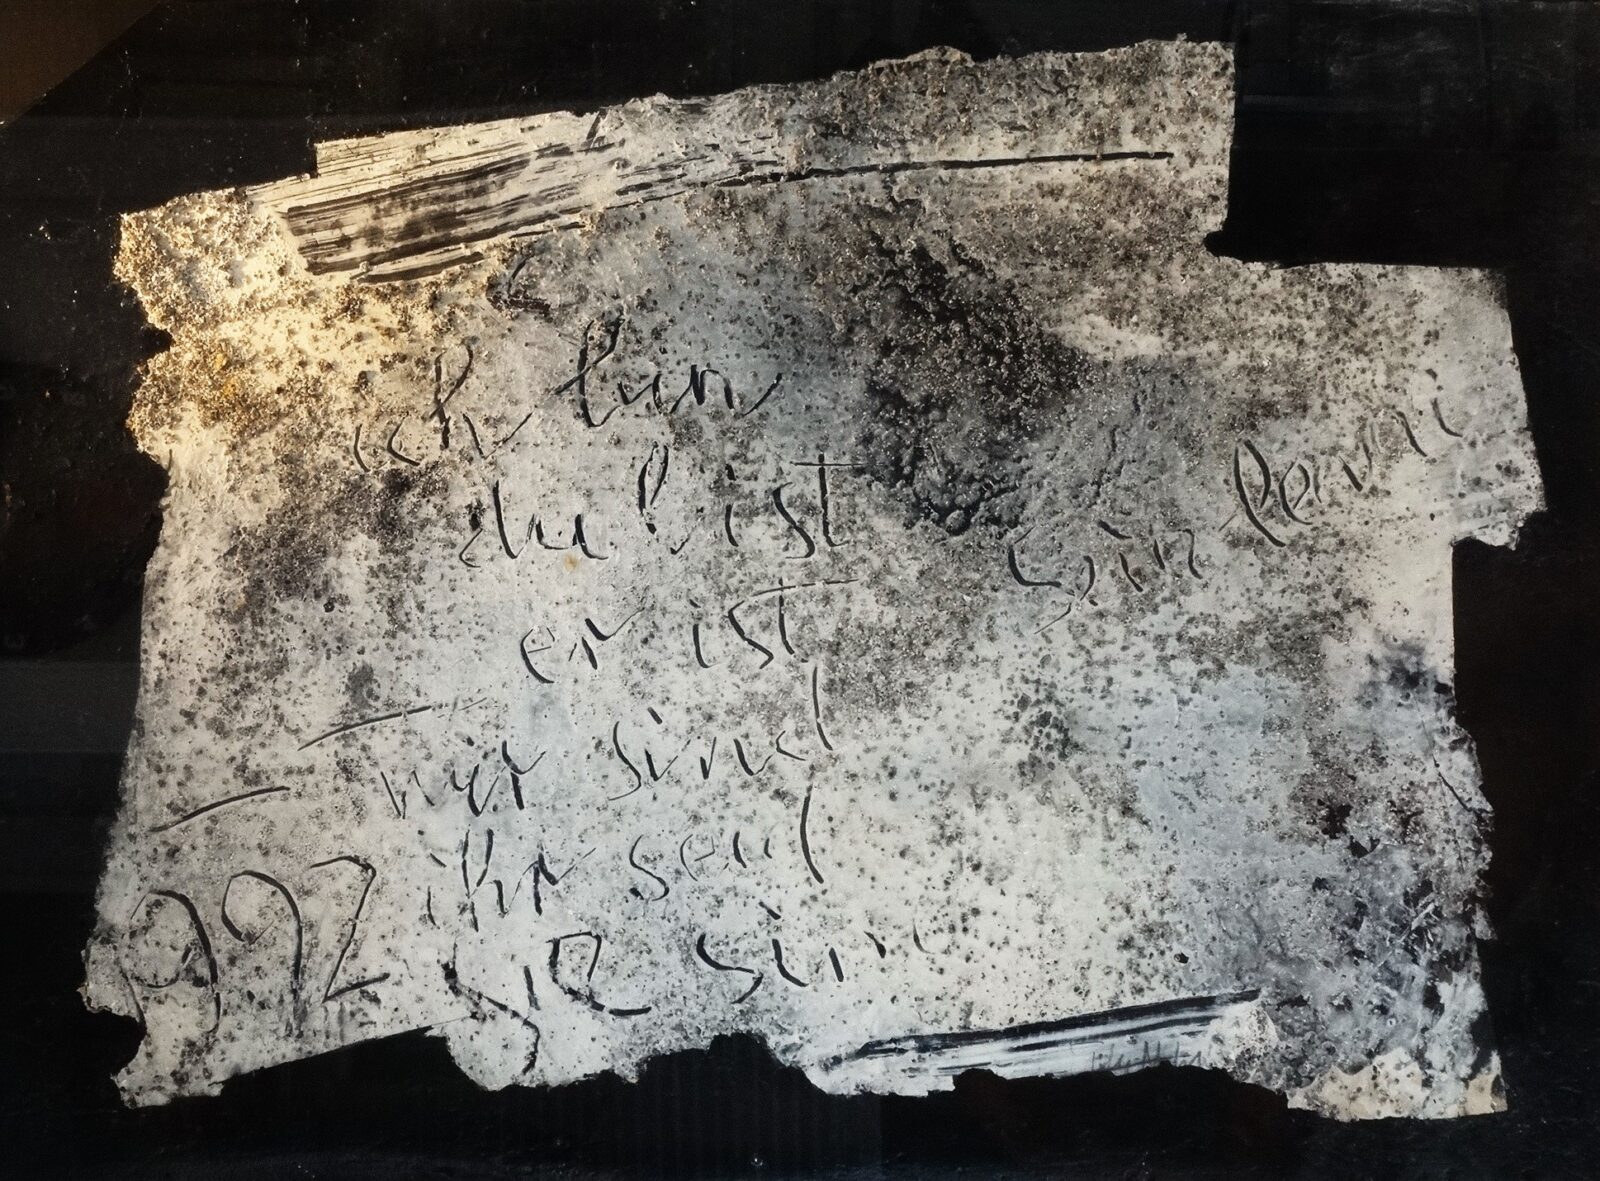 ich bin
du bist
er ist
wir sind
ihr seid
sie sin
sein
992